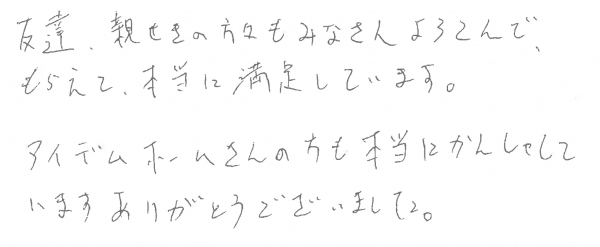 友達、親せきの方々もみなさんよろこんで、
もらえて、本当に満足しています。
アイデムホームさんの方も本当にかんしゃして
いますありがとうございました。